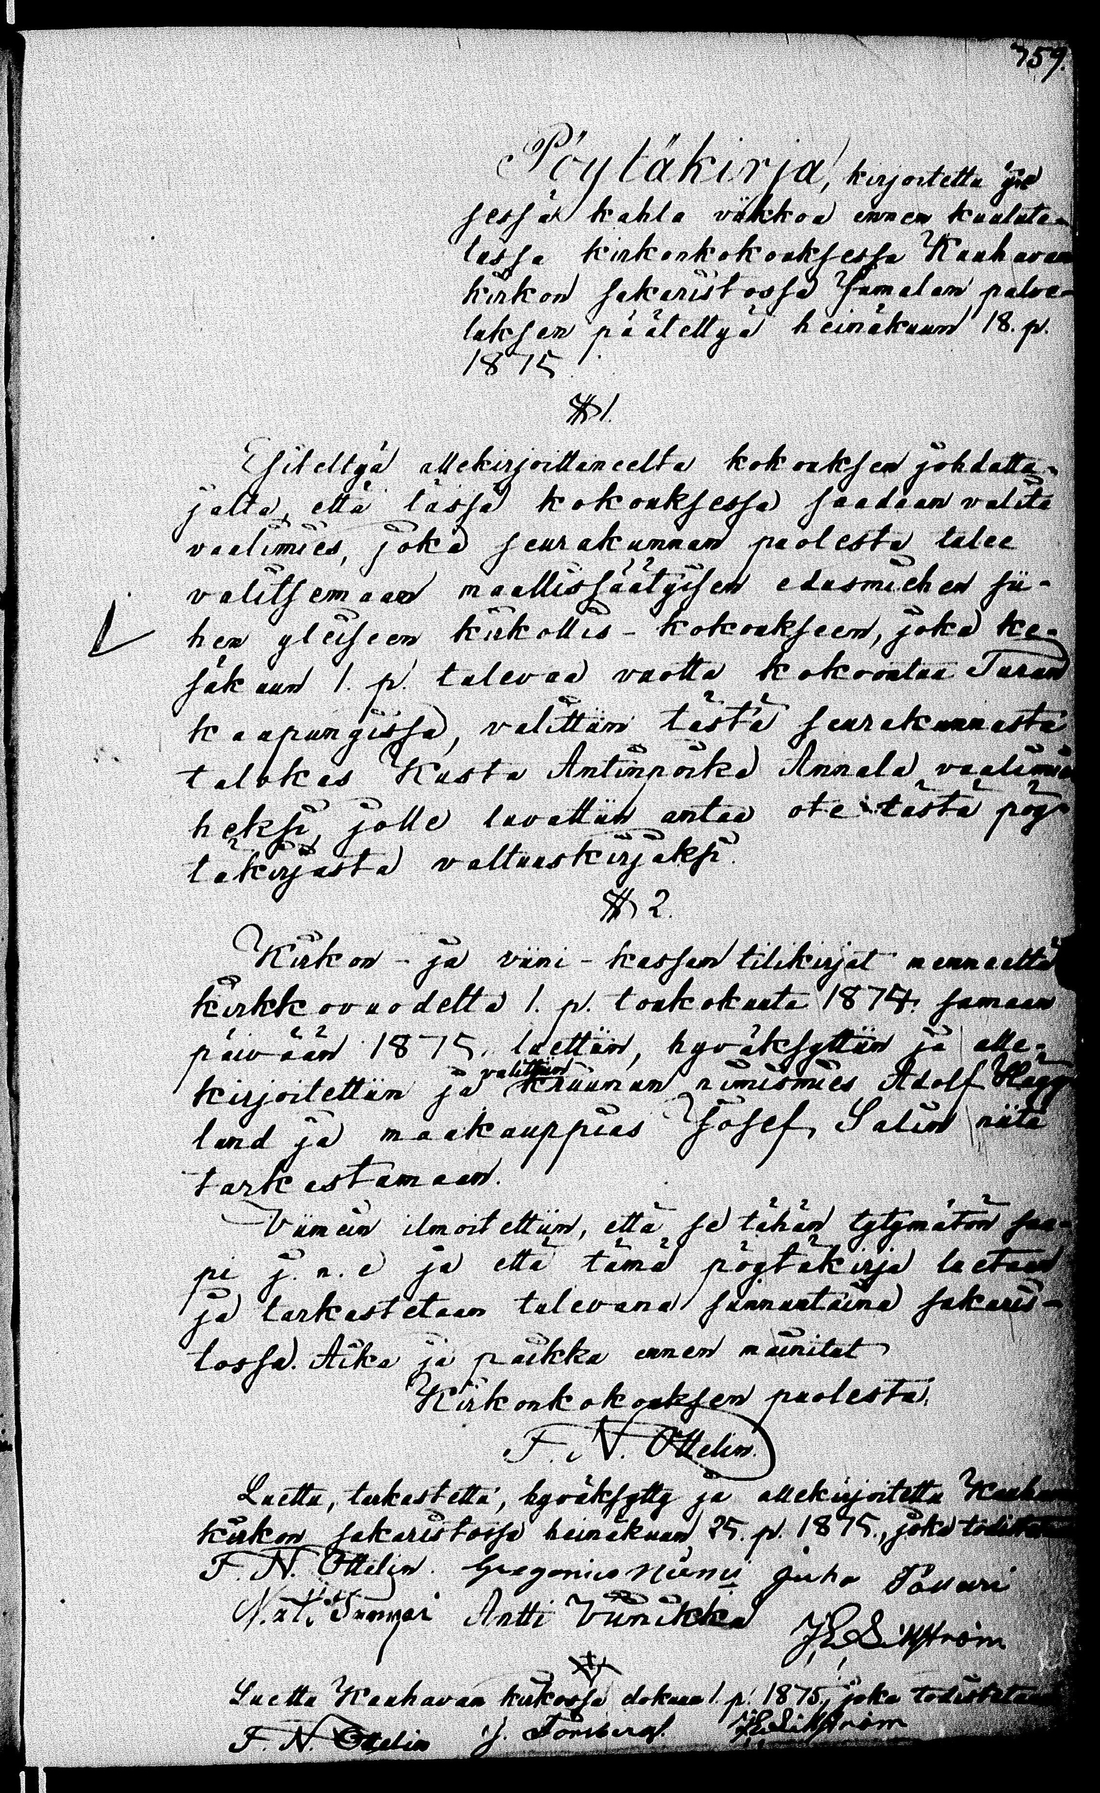 759.
Pöytäkirja, kirjoitettu yh-
sessä kahta viikkoa ennen kuuluta-
tussa kirkonkokouksessa Kauhavan
kirkon sakaristossa Jumalan palve-
luksen päätettyä heinäkuun 18. p.
1875.
§ 1.
Esiteltyä allekirjoittaneelta kokouksen johdatta-
jalta, että tässä kokouksessa saadaan valita
vaalimies, joka seurakunnan puolesta tulee
valitsemaan maallissäätyisen edusmiehen sii-
hen yleiseen kirkollis-kokoukseen, joka ke-
säkuun 1. p. tulevaa vuotta kokoontuu Turun
kaupungissa, valittiin tästä seurakunnasta
talokas Kusta Antinpoika Annala vaalimie-
heksi, jolle luvattiin antaa ote tästä pöy-
täkirjasta valtuuskirjaksi.
§ 2.
Kirkon- ja viini-kassan tilikirjat menneeltä
kirkkovuodelta 1. p. toukokuuta 1874 samaan
päivään 1875 luettiin, hyväksyttiin ja alle-
kirjoitettiin ja valittiin kruunun nimismies Adolf Hägg-
lund ja maakauppias Josef Salin niitä
tarkastamaan.
Viimein ilmoitettiin, että se tähän tytymätön saa-
pi j. n. e ja että tämä pöytäkirja luetaan
ja tarkastetaan tulevana sunnuntaina sakaris-
tossa. Aika ja paikka ennen mainitut
Kirkonkokouksen puolesta:
F. N. Ottelin.
Luettu, tarkastettu, hyväksytty ja allekirjoitettu Kauhavan
kirkon sakaristossa heinäkuun 25. p. 1875, joka todistetaan
F. N. Ottelin. Gregorius Niemi Juho Passari
Matti Antti Viinikka
J. E. Sillström
Luettu Kauhavan kirkossa elokuun 1. p. 1875, joka todistetaan
F. N. Ottelin J. Törnberg. J. E. Sillström